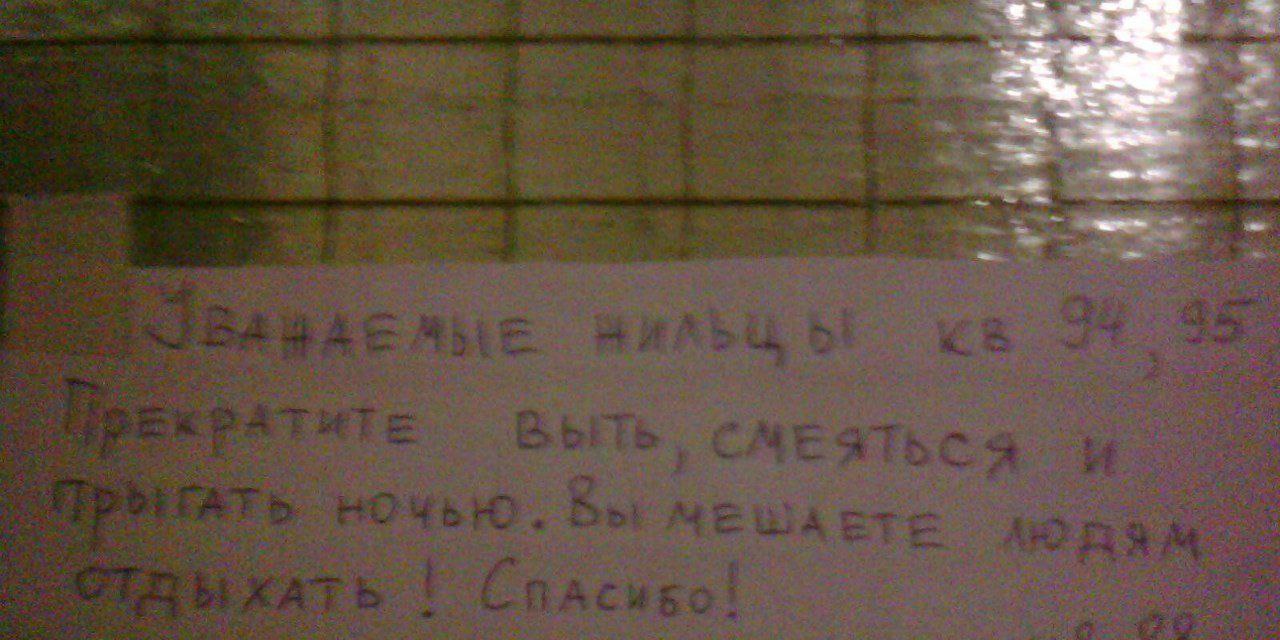 Уважаемые жильцы кв 94, 95
Прекратите выть, смеяться и
прыгать ночью. Вы мешаете людям
отдыхать! Спасибо!